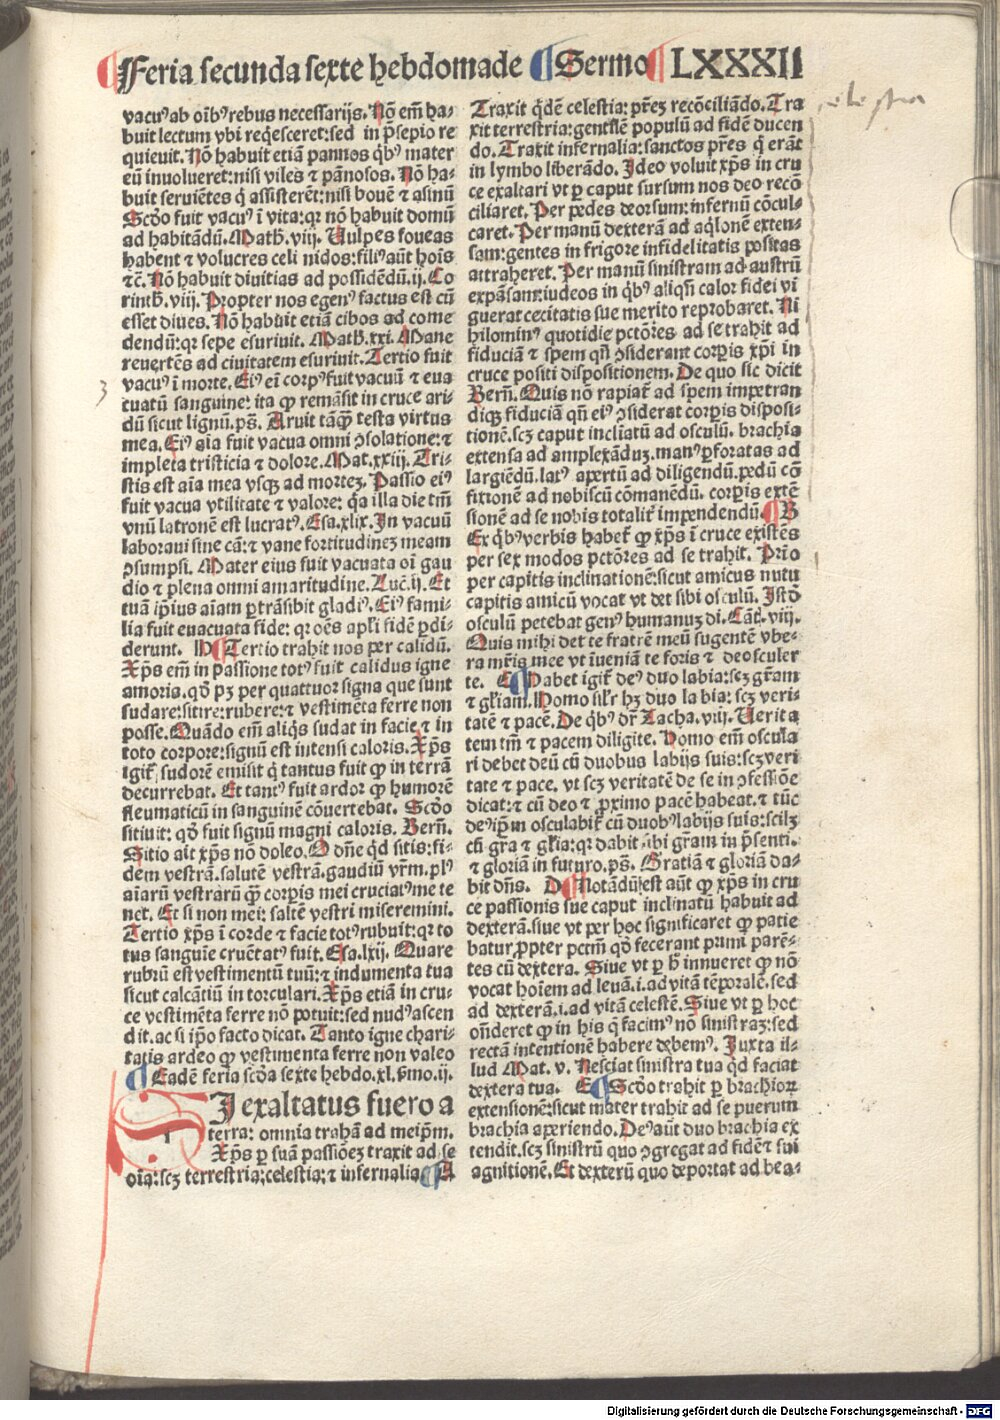 Feria secunda sexte hebdomade Sermo LXXXII
vacuꝰ ab oībꝰ rebus necessarijs. Nō em̄ ha-
buit lectum vbi reqͥesceret: sed in p̄sepio re
quieuit. Nō habuit etiā pannos qͥbꝰ mater
eū inuolueret: nisi viles ⁊ pānosos. Nō ha-
buit seruiētes qͥ assisterēt: nisi bouē ⁊ asinū
Scd̓o fuit vacuꝰ ī vita: qꝛ nō habuit domū
ad habitādū. Math. viij. Vulpes foueas
habent ⁊ volucres celi nidos: filiꝰ aūt hoīs
⁊c̄. Nō habuit diuitias ad possidēdū. ij. Co
rinth. viij. Propter nos egenꝰ factus est cū
esset diues. Nō habuit etiā cibos ad come
dendū: qꝛ sepe esuriuit. Math. xxi. Mane
reuertēs ad ciuitatem esuriuit. Tertio fuit
vacuꝰ ī morte. Eiꝰ ei̅ corpꝰ fuit vacuū ⁊ eua
cuatū sanguine: ita ꝙ remāsit in cruce ari-
dū sicut lignū. ps. Aruit tāqͣꝫ testa virtus
mea. Eiꝰ aīa fuit vacua omni ↄsolatione: ⁊
impleta tristicia ⁊ dolore. Mat. xxiij. Tri-
stis est aīa mea vsqꝫ ad mortez. Passio eiꝰ
fuit vacua vtilitate ⁊ valore: qͣ illa die tm̄
vnū latronē est lucratꝰ. Esa. xlix. In vacuū
laboraui sine cā: ⁊ vane fortitudinez meam
ↄsumpsi. Mater eius fuit vacuata oī gau
dio ⁊ plena omni amaritudine. Luc̄. ij. Et
tuā ip̄ius aīam ꝑtrāsibit gladiꝰ. Eiꝰ fami-
lia fuit euacuata fide: qꝛ oēs apl̓i fidē ꝑdi-
derunt. D Tertio trahit nos per calidū.
Xp̄s em̄ in passione totꝰ fuit calidus igne
amoris. qd̓ pꝫ per quattuor signa que sunt
sudare: sitire: rubere: ⁊ vestimēta ferre non
posse. Quādo em̄ aliqͥs sudat in facie ⁊ in
toto corpore: signū est intensi caloris. Xp̄s
igit̄ sudorē emisit qͥ tantus fuit ꝙ in terrā
decurrebat. Et tantꝰ fuit ardor ꝙ humorē
fleumaticū in sanguinē cōuertebat. Scd̓o
sitiuit: qd̓ fuit signū magni caloris. Bern̄.
Sitio ait xp̄s nō doleo. O dn̄e qͥd sitis: fi-
dem vestrā. salutē vestrā. gaudiū vr̄m. plꝰ
aīarū vestrarū ꝙ̄ corpis mei cruciatꝰ me te
net. Et si non mei: saltē vestri miseremini.
Tertio xp̄s ī corde ⁊ facie totꝰ rubuit: qꝛ to
tus sanguīe cruētatꝰ fuit. Esa. lxij. Quare
rubrū est vestimentū tuū: ⁊ indumenta tua
sicut calcātiū in torculari. Xp̄s etiā in cru-
ce vestimēta ferre nō potuit: sed nudꝰ ascen
dit. ac si ip̄o facto dicat. Tanto igne chari-
tatis ardeo ꝙ vestimenta ferre non valeo
Eadē feria scd̓a sexte hebdo. xl. ẜmo. ij.
SI exaltatus fuero a
terra: omnia trahā ad meip̄m.
Xp̄s ꝑ suā passiōez traxit ad se
oīa: scꝫ terrestria; celestia; ⁊ infernalia A
Traxit qͥdē celestia: pr̄ez recōciliādo. Tra
xit terrestria: gentilē populū ad fidē ducen
do. Traxit infernalia: sanctos pr̄es qͥ erāt
in lymbo liberādo. Ideo voluit xp̄s in cru
ce exaltari vt ꝑ caput sursum nos deo recō
ciliaret. Per pedes deorsum: infernū cōcul-
caret. Per manū dexterā ad aqͥlonē exten-
sam: gentes in frigore infidelitatis positas
attraheret. Per manū sinistram ad austrū
expāsam: iudeos in qͥbꝰ aliqn̄ calor fidei vi
guerat cecitatis sue merito reprobaret. Ni
hilominꝰ quotidie pctōres ad se trahit ad
fiduciā ⁊ spem qn̄ ↄsiderant corpis xp̄i in
cruce positi dispositionem. De quo sic dicit
Bern̄. Quis nō rapiat̄ ad spem impetran
diqꝫ fiduciā qn̄ eiꝰ ↄsiderat corpis disposi-
tionē. scꝫ caput inclīatū ad osculū. brachia
extensa ad amplexāduꝫ. manꝰ ꝑforatas ad
largiēdū. latꝰ apertū ad diligendū. pedū cō
fixionē ad nobiscū cōmanēdū. corpis extē
sionē ad se nobis totalit̓ impendendū. B
Ex qͥbꝰ verbis habet̄ ꝙ xp̄s ī cruce existēs
per sex modos pctōres ad se trahit. Prīo
per capitis inclinationē: sicut amicus nutu
capitis amicū vocat vt det sibi osculū. Istd̓
osculū petebat genꝰ humanuꝫ di. Cāt̓. viij.
Quis mihi det te fratrē meū sugentē vbe-
ra mr̄is mee vt īueniā te foris ⁊ deosculer
te. C Habet igit̄ deꝰ duo labia: scꝫ gr̄am
⁊ gl̓iam. Homo sil̓r hꝫ duo labia: scꝫ veri-
tatē ⁊ pacē. De qͥbꝰ dr̄ Zacha. viij. Verita
tem tm̄ ⁊ pacem diligite. Homo em̄ oscula
ri debet deū cū duobus labijs suis: scꝫ veri
tate ⁊ pace. vt scꝫ veritatē de se in ↄfessiōe
dicat: ⁊ cū deo ⁊ ꝓximo pacē habeat. ⁊ tūc
deꝰ ip̄m osculabit̄ cū duobꝰ labijs suis: scilꝫ
cū gr̄a ⁊ gl̓ia: qꝛ dabit sibi gr̄am in p̄senti.
⁊ gloriā in futuro. ps. Gratiā ⁊ gloriā da-
bit dn̄s. D Notādū est aūt ꝙ xp̄s in cru
ce passionis sue caput inclinatū habuit ad
dexterā. siue vt per hoc significaret ꝙ patie
batur ꝓpter pctm̄ qd̓ fecerant primi parē-
tes cū dextera. Siue vt ꝑ h̓ innueret ꝙ nō
vocat hoīem ad leuā. i. ad vitā tēporalē. sed
ad dexterā. i. ad vitā celestē. Siue vt ꝑ hoc
on̄deret ꝙ in his q̄ facimꝰ nō sinistraꝫ: sed
rectā intentionē habere debemꝰ. Juxta il-
lud Mat. v. Nesciat sinistra tua qͥd faciat
dextera tua. E Scd̓o trahit ꝑ brachioꝝ
extensionē: sicut mater trahit ad se puerum
brachia aperiendo. Deꝰ aūt duo brachia ex
tendit. scꝫ sinistrū quo ↄgregat ad fidē ⁊ sui
agnitionē. Et dexterū quo deportat ad bea-
Digitalisierung gefördert durch die Deutsche Forschungsgemeinschaft - DFG